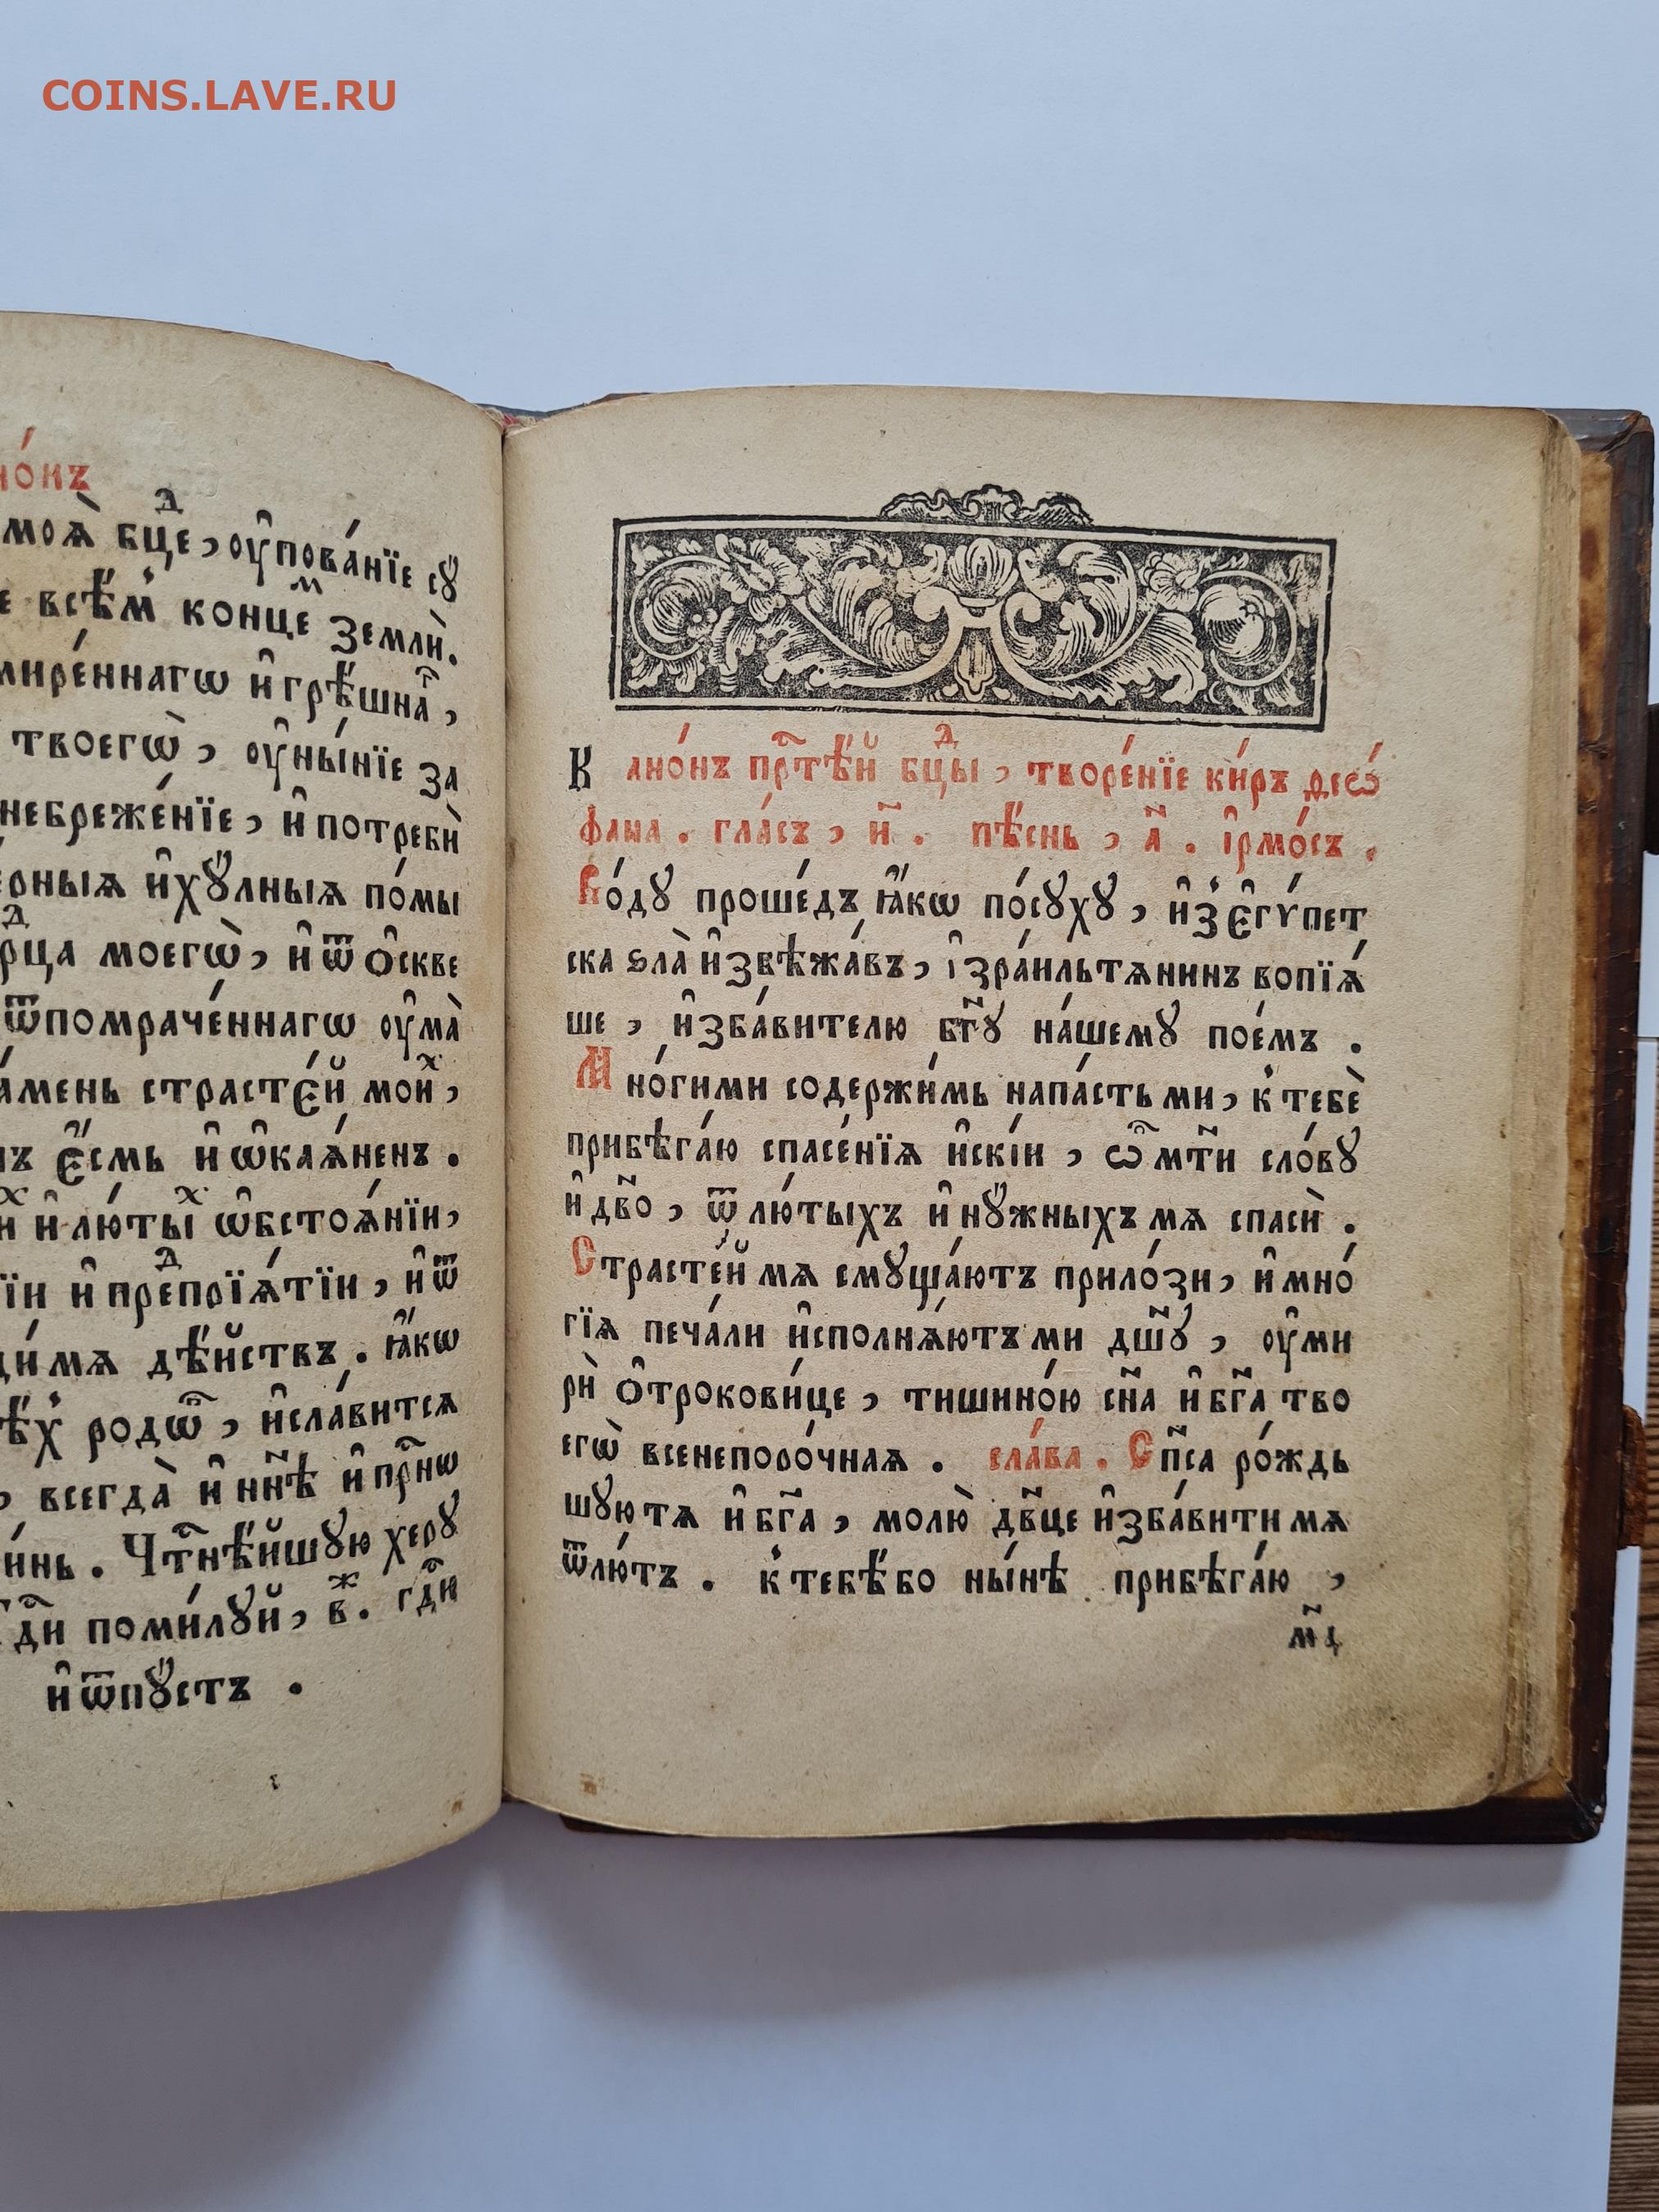 COINS.LAVE.RU
моѧ̀ бцⷣе, ᲂу҆пова́нїе сꙋ́
всѣ́м конце́ⷨ землѝ.
и҆грѣ́шнаⷢ,
твоегѡ̀, ᲂу҆ны́нїе за
небреже́нїе, и҆потребѝ
и҆хꙋ́лныѧ по́мы
моегѡ̀, и҆ѿ ѻ҆скве
ѿпомраче́ннагѡ ᲂу҆ма̀
страсте́й мои́ⷯ,
є҆́смь и҆ѡ҆каѧ́ненъ.
и҆лю́тыⷯ ѡ҆бстоѧ́нїи,
и҆преⷣпрїѧ́тїи, и҆ѿ
дѣ́йствъ. ꙗ҆́кѡ
родѡⷡ, и҆сла́витсѧ
всегда̀ и҆нн҃ѣ и҆при́снѡ
Чтⷭнѣ́йшꙋю херꙋ
гдⷭи поми́лꙋй, в҃ⷤ. гдⷭи
и҆ѿпꙋ́стъ.
Кано́нъ прⷭтѣ́й бцⷣы, творе́нїе ки́ръ ѳеѡ́
фана. гла́съ, и҃. пѣ́снь, а҃. і҆рмо́съ.
Во́дꙋ проше́дъ ꙗ҆́кѡ по́сꙋхꙋ, и҆з̾є҆гѵ́пет
ска ѕла̀ и҆збѣжа́въ, і҆зра́ильтѧнинъ вопїѧ́
ше, и҆зба́вителю бг҃ꙋ на́шемꙋ пое́мъ.
Мно́гими содержи́мь напа́стьми, к̾тебѐ
прибѣга́ю спасе́нїѧ и҆скі́и, ѽ мт҃и сло́вꙋ
и҆ дв҃о, ѿ лю́тыхъ и҆ нꙋ́жныхъ мѧ спасѝ.
Страсте́й мѧ смꙋща́ютъ прило́зи, и҆ мно́
гїѧ печа́ли и҆сполнѧ́ютъ ми дш҃ꙋ, ᲂу҆ми
рѝ ѻ҆трокови́це, тишино́ю сн҃а и҆ бг҃а тво
егѡ̀ всенепоро́чнаѧ. сла́ва. Сп҃са ро́ждь
шꙋютѧ и҆ бг҃а, молю̀ дв҃це и҆зба́витимѧ
ѿлю́тъ. к̾тебѣ́бо ны́нѣ прибѣга́ю,